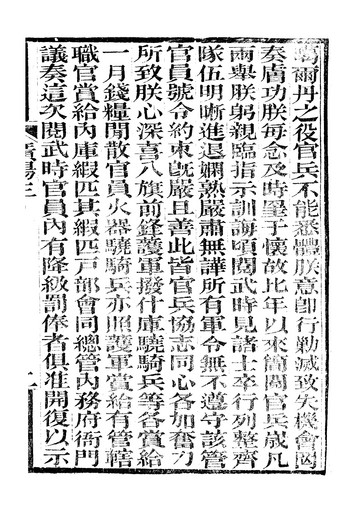 噶爾丹之役官兵不能悉體朕意即行勦滅致失機會因
奏膚功朕每念及時墨予懷故比年以來簡閱官兵歲凡
兩舉朕躬親臨指示訓誨頃閱武時見諸士卒行列整齊
隊伍明晰進退嫻熟嚴肅無譁所有軍令無不遵守該管
官員號令約束既嚴且善此皆官兵協志同心各加奮力
所致朕心深喜八旗前鋒護軍撥什庫驍騎兵等各賞給
一月錢糧閒散官員火器驍騎兵亦照護軍賞給有管轄
職官賞給內庫緞匹其緞匹戸部會同總管內務府衙門
議奏這次閱武時官員內有降級罰俸者俱准開復以示
賞賜三